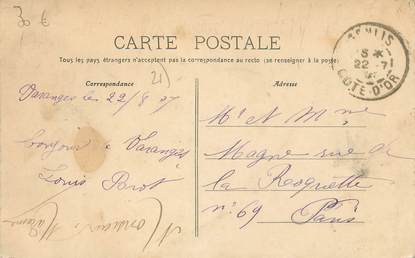 30 €
CARTE POSTALE
Tous les pays étrangers n'acceptent pas la correspondance au recto (se renseigner à la poste)
Correspondance
Adresse
21)
GENLIS
22 -7
CÔTE-D'OR
Varanges les 22/8 07
bonjour de Varanges
Louis
Mr et Mme
Magne rue de
la Roquette
n: 69
Paris